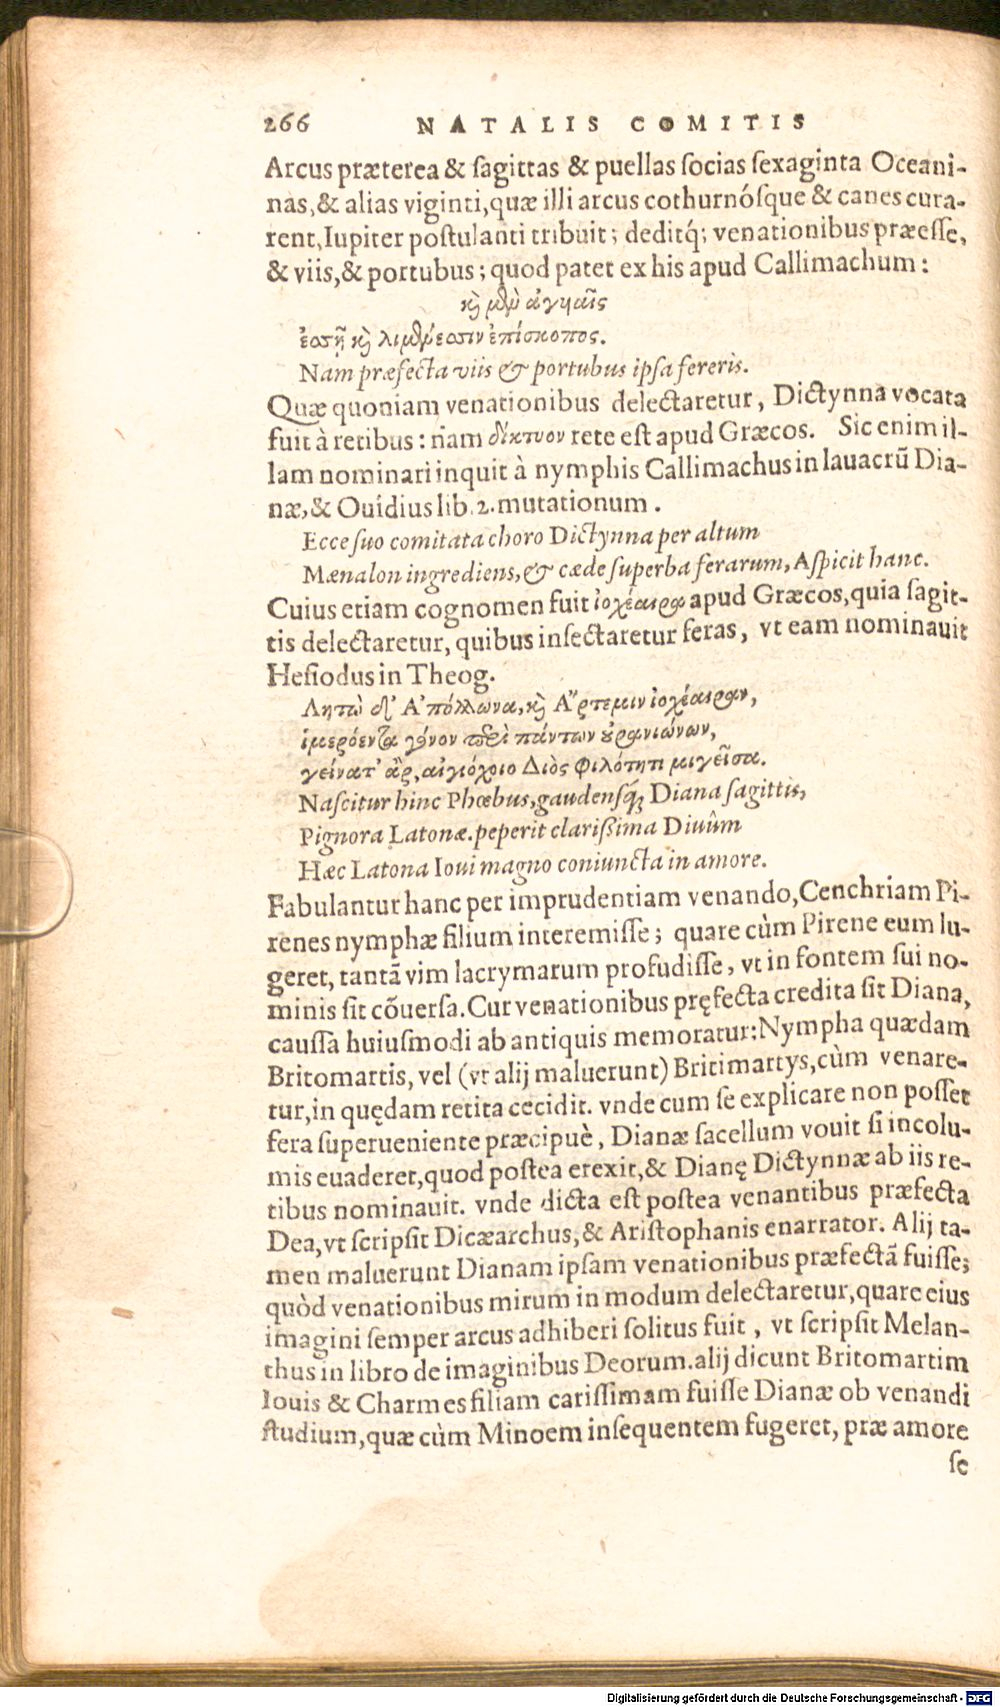 266 NATALIS COMITIS
Arcus præterea & sagittas & puellas socias sexaginta Oceani-
nas, & alias viginti, quæ illi arcus cothurnósque & canes cura-
rent, Iupiter postulanti tribuit; deditq́; venationibus præesse,
& viis, & portubus; quod patet ex his apud Callimachum:
καὶ μὲν ἀγυιαῖς
ἔσσῃ καὶ λιμένεσσιν ἐπίσκοπος.
Nam præfecta viis & portubus ipsa fereris.
Quæ quoniam venationibus delectaretur, Dictynna vocata
fuit à retibus: nam δίκτυον rete est apud Græcos. Sic enim il-
lam nominari inquit à nymphis Callimachus in lauacrũ Dia-
næ, & Ouidius lib. 2. mutationum.
Ecce suo comitata choro Dictynna per altum
Mænalon ingrediens, & cæde superba ferarum, Aspicit hanc.
Cuius etiam cognomen fuit ἰοχέαιρα apud Græcos, quia sagit-
tis delectaretur, quibus insectaretur feras, vt eam nominauit
Hesiodus in Theog.
Λητὼ δ' Ἀπόλλωνα, καὶ Ἄρτεμιν ἰοχέαιραν,
ἱμερόεντα γόνον περὶ πάντων οὐρανιώνων,
γείνατ' ἄρ, αἰγιόχοιο Διὸς φιλότητι μιγεῖσα.
Nascitur hinc Phœbus, gaudensq́; Diana sagittis,
Pignora Latonæ. peperit clarissima Diuûm
Hæc Latona Ioui magno coniuncta in amore.
Fabulantur hanc per imprudentiam venando, Cenchriam Pi-
renes nymphæ filium interemisse; quare cùm Pirene eum lu-
geret, tantã vim lacrymarum profudisse, vt in fontem sui no-
minis sit cõuersa. Cur venationibus pręfecta credita sit Diana,
caussa huiusmodi ab antiquis memoratur: Nympha quædam
Britomartis, vel (vt alij maluerunt) Britimartys, cùm venare-
tur, in quędam retita cecidit. vnde cum se explicare non posset
fera superueniente præcipuè, Dianæ sacellum vouit si incolu-
mis euaderet, quod postea erexit, & Dianę Dictynnæ ab iis re-
tibus nominauit. vnde dicta est postea venantibus præfecta
Dea, vt scripsit Dicæarchus, & Aristophanis enarrator. Alij ta-
men maluerunt Dianam ipsam venationibus præfectã fuisse;
quòd venationibus mirum in modum delectaretur, quare eius
imagini semper arcus adhiberi solitus fuit, vt scripsit Melan-
thus in libro de imaginibus Deorum. alij dicunt Britomartim
Iouis & Charmes filiam carissimam fuisse Dianæ ob venandi
studium, quæ cùm Minoem insequentem fugeret, præ amore
se
Digitalisierung gefördert durch die Deutsche Forschungsgemeinschaft - DFG